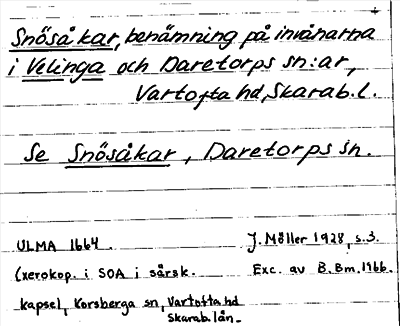 Snösåkar, benämning på invånarna
i Velinga och Daretorps sn:ar,
Vartofta hd, Skarab.l.
Se Snösåkar, Daretorps sn.
ULMA 1664. J. Möller 1928, s.3.
(xerokop. i SOA i särsk. Exc. av B.Bm.1966.
kapsel, Korsberga sn, Vartofta hd
Skarab.län.